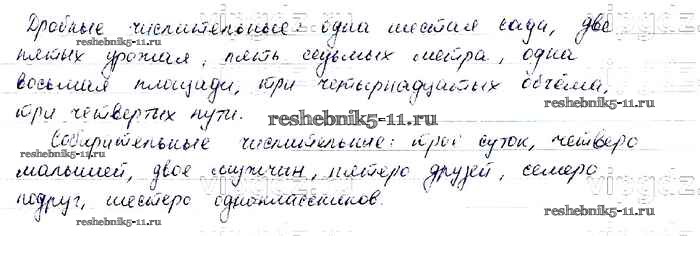 Дробные числительные: одна шестая сада, две
пятых урожая, пять седьмых метра, одна
восьмая площади, три четырнадцатых объёма,
три четвертых пути.
Собирательные числительные: трое суток, четверо
малышей, двое мужчин, пятеро друзей, семеро
подруг, шестеро одноклассников.
reshebnik5-11.ru
reshebnik5-11.ru
reshebnik5-11.ru
reshebnik5-11.ru
reshebnik5-11.ru
reshebnik5-11.ru